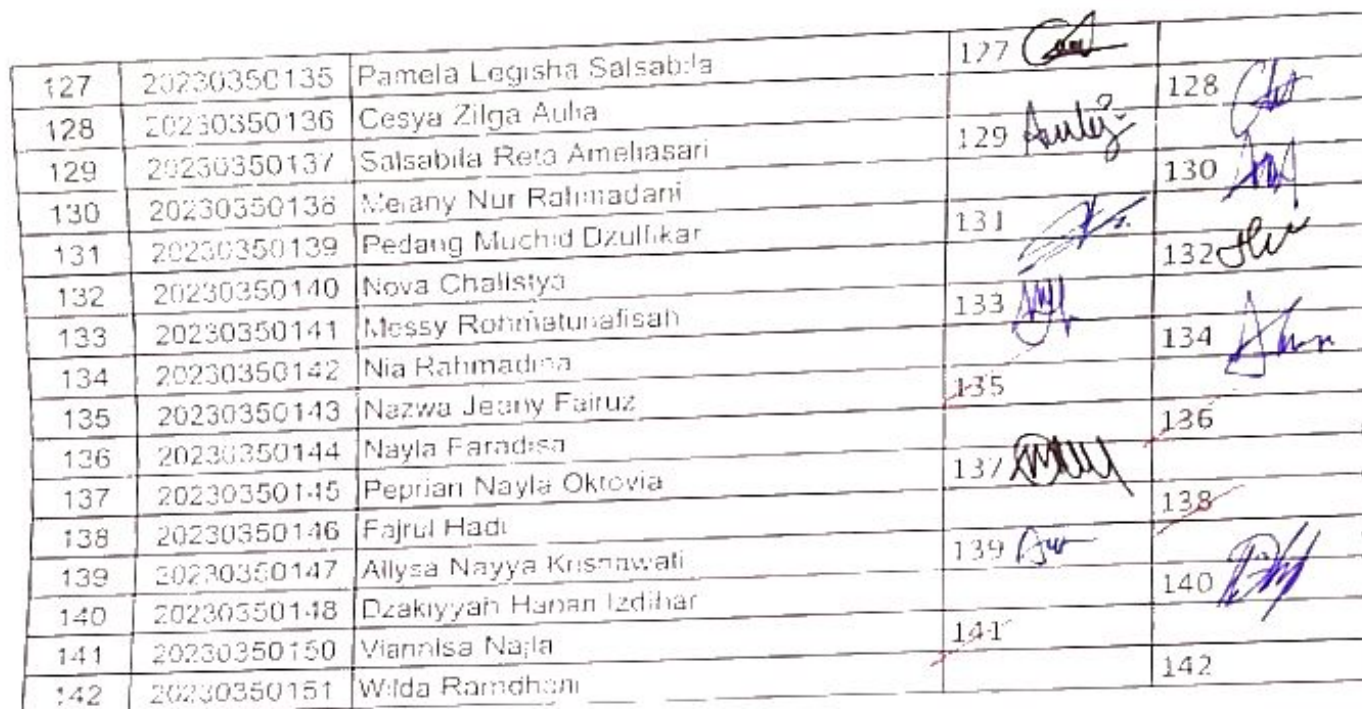 127 20230350135 Pamela Legisha Salsabila 127
128 20230350136 Cesya Zilga Aulia 128
129 20230350137 Salsabila Reta Ameliasari 129
130 20230350138 Melany Nur Rahmadani 130
131 20230350139 Pedang Muchid Dzulfikar 131
132 20230350140 Nova Chalistya 132
133 20230350141 Messy Rohmatunafisah 133
134 20230350142 Nia Rahmadina 134
135 20230350143 Nazwa Jeany Fairuz 135
136 20230350144 Nayla Faradisa 136
137 20230350145 Peprian Nayla Oktovia 137
138 20230350146 Fajrul Hadi 138
139 20230350147 Allysa Nayya Krisnawati 139
140 20230350148 Dzakiyyah Hanan Izdihar 140
141 20230350150 Viannisa Najla 141
142 20230350151 Wilda Ramdhani 142